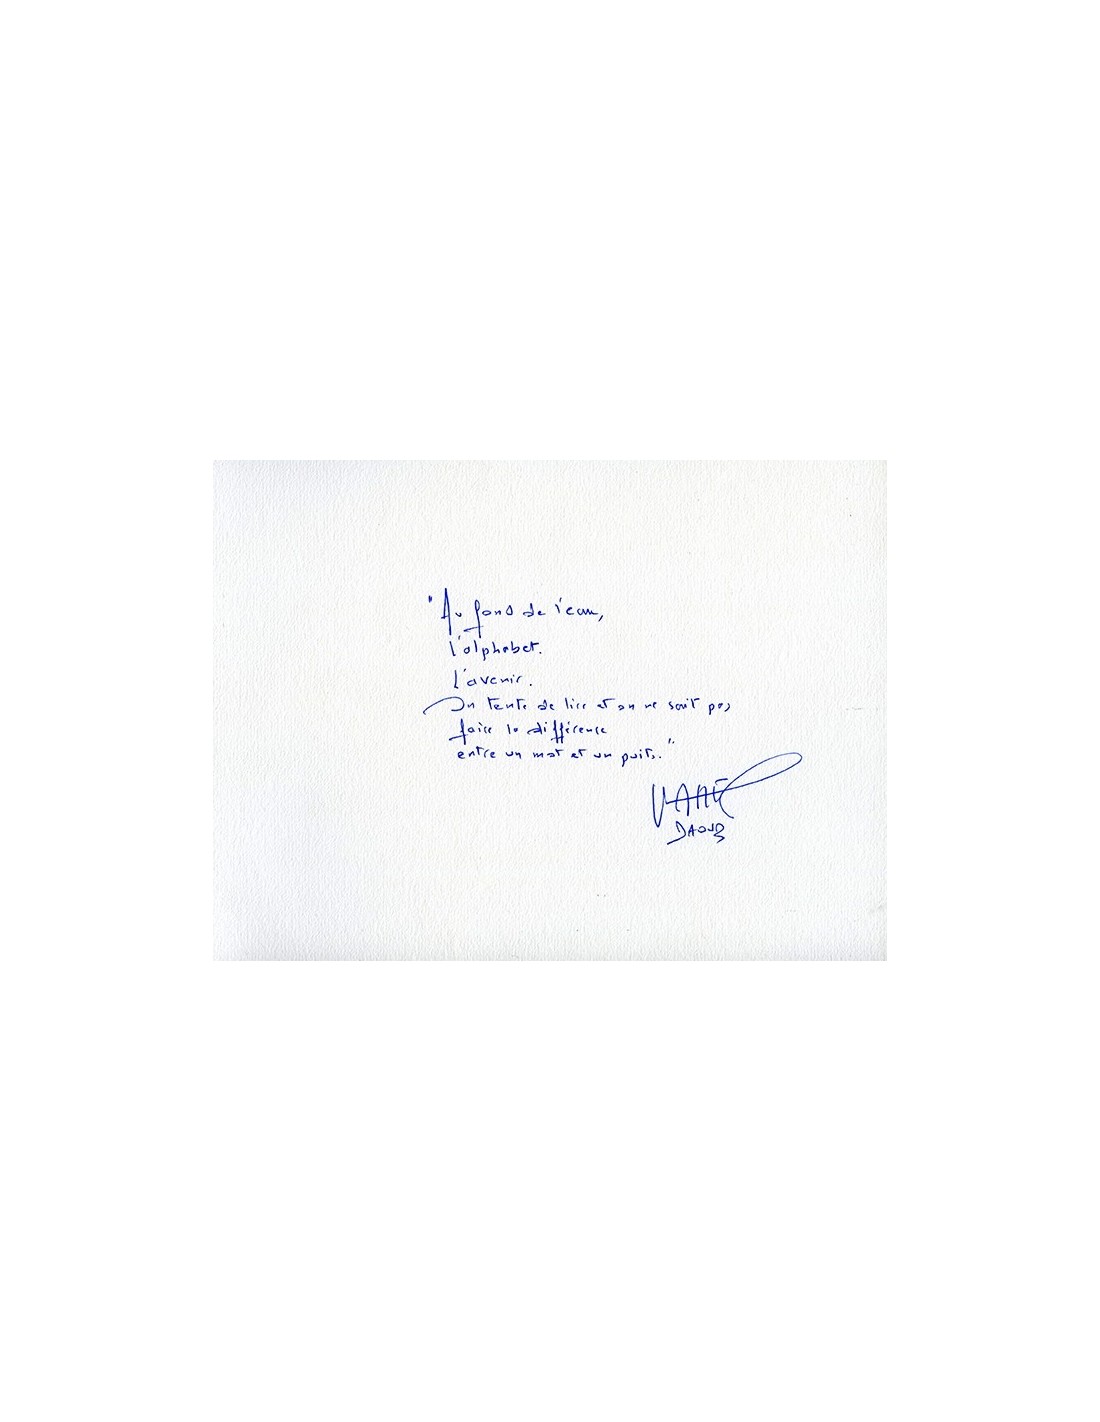 "Au fond de l'eau,
l'alphabet.
L'avenir.
On tente de lire et on ne sait pas
faire la différence
entre un mot et un puits."
DAOUD